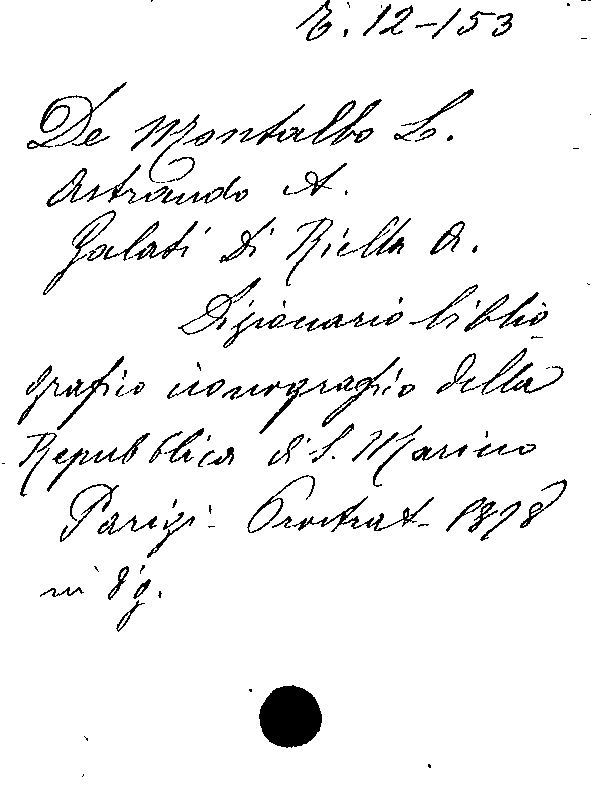 E. 12-153
De Montalbo L.
Astraudo A.
Galati Di Riella A.
Dizionario biblio
grafico iconografico della
Repubblica di S. Marino
Parigi - 1898
in 8° g.